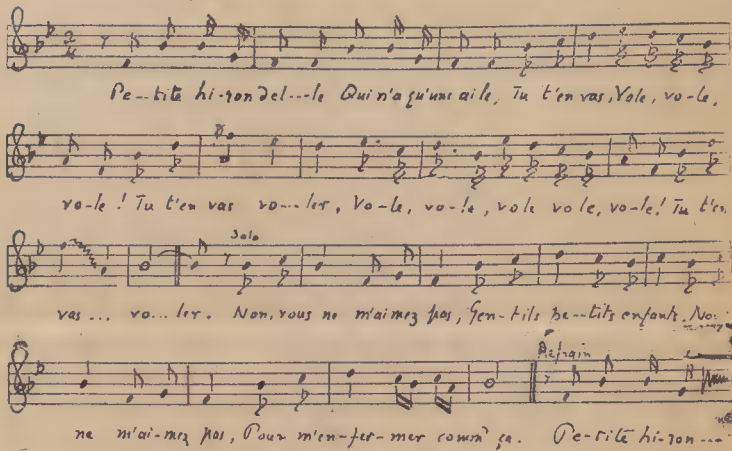 Pe--tite hi-ron del---le Qui n'a qu'une aile, Tu t'en vas, Vole, vo-le,
vo-le! Tu t'en vas vo---ler, Vo-le, vo-le, vole vole, vo-le! Tu t'en
Solo
vas... vo...ler. Non, vous ne m'aimez pas, Gen-tils pe--tits enfants. No
Refrain
ne m'ai-mez pas, Pour m'en-fer-mer comm' ça. Pe-tite hi-ron---